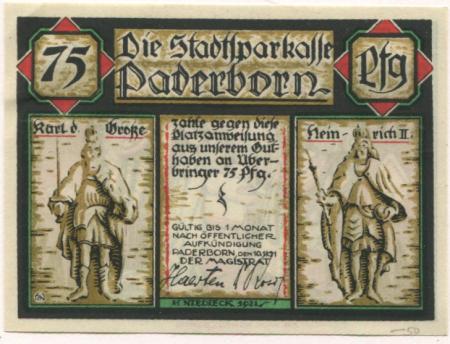 75
Die Stadtsparkasse
Paderborn
Pfg
Karl d. Große
zahle gegen diese
Platzanweisung
aus unserem Gut-
haben an Über-
bringer 75 Pfg.
GÜLTIG BIS 1 MONAT
NACH ÖFFENTLICHER
AUFKÜNDIGUNG
PADERBORN, DEN 10.11.21
DER MAGISTRAT
Haerten
Hein-rich II.
NIEDIECK 1921
50